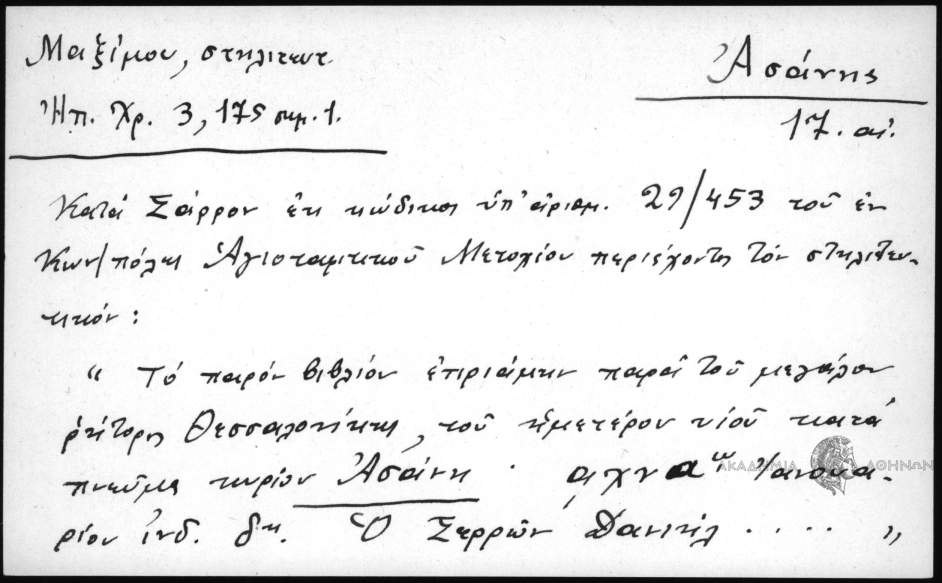 Μαξίμου, στηλιτευτ.
Ἀσάνης
Ἠπ. Χρ. 3, 175 σημ. 1.
17. αἰ.
Κατά Σάρρον ἐκ κώδικος ὑπ' ἀριθμ. 29/453 τοῦ ἐν
Κων/πόλει Ἁγιοταφιτικοῦ Μετοχίου περιέχοντος τόν στηλιτευ-
τικόν :
" Τό παρόν βιβλίον ἐπριάμην παρά τοῦ μεγάλου
ῥήτορος Θεσσαλονίκης, τοῦ ἡμετέρου υἱοῦ κατά
πνεῦμα κυρίου Ἀσάνη · αχνα ῳ Ἰανουα-
ρίου ἰνδ. δης. Ὁ Σερρῶν Δανιήλ . . . . "
ΑΚΑΔΗΜΙΑ ΑΘΗΝΩΝ